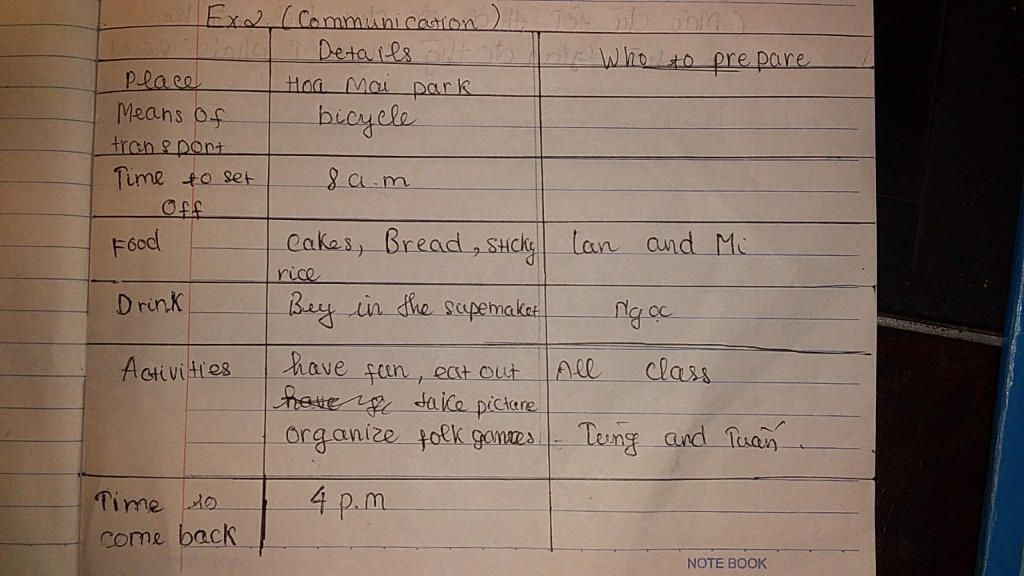 Ex2. (Communication)
Details Who to prepare
Place Hoa Mai park
Means of bicycle
transport
Time to set 8 a.m
Off
Food Cakes, Bread, sticky lan and Mi
rice
Drink Bey in the supemaket Ngọc
Activities have fun, eat out All class
have take picture
organize folk games - Tùng and Tuấn.
Time to 4 p.m
come back
NOTE BOOK